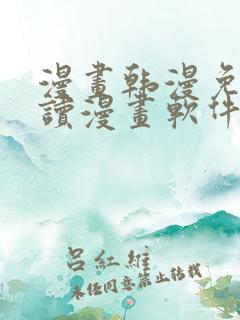 漫畫韩漫免
讀漫畫軟件
呂紅維
未经同意禁止转载